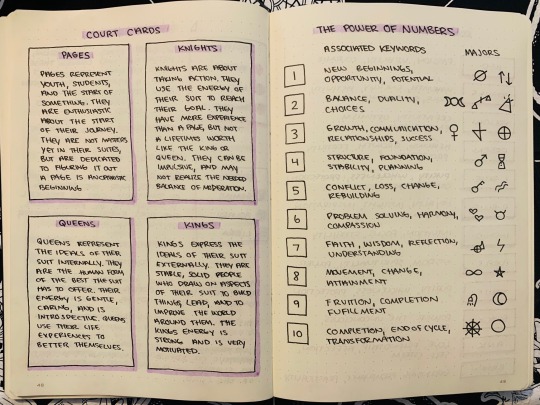 COURT CARDS
PAGES
PAGES REPRESENT
YOUTH, STUDENTS,
AND THE START OF
SOMETHING. THEY
ARE ENTHUSIASTIC
ABOUT THE START
OF THEIR JOURNEY.
THEY ARE NOT MASTERS
YET IN THEIR SUITES,
BUT ARE DEDICATED
TO FIGURING IT OUT
A PAGE IS AN
BEGINNING
KNIGHTS
KNIGHTS ARE ABOUT
TAKING ACTION. THEY
USE THE ENERGY OF
THEIR SUIT TO REACH
THEIR GOAL. THEY
HAVE MORE EXPERIENCE
THAN A PAGE, BUT NOT
A LIFETIMES WORTH
LIKE THE KING OR
QUEEN. THEY CAN BE
IMPULSIVE, AND MAY
NOT REALIZE THE NEEDED
BALANCE OF MODERATION.
QUEENS
QUEENS REPRESENT
THE IDEALS OF THEIR
SUIT INTERNALLY. THEY
ARE THE HUMAN FORM
OF THE BEST THE SUIT
HAS TO OFFER. THEIR
ENERGY IS GENTLE,
CARING, AND IS
INTROSPECTIVE. QUEENS
USE THEIR LIFE
EXPERIENCES TO
BETTER THEMSELVES.
KINGS
KINGS EXPRESS THE
IDEALS OF THEIR SUIT
EXTERNALLY. THEY ARE
STABLE, SOLID PEOPLE
WHO DRAW ON ASPECTS
OF THEIR SUIT TO BUILD
THINGS, LEAD, AND TO
IMPROVE THE WORLD
AROUND THEM. THE
KINGS ENERGY IS
STRONG AND IS VERY
MOTIVATED.
THE POWER OF NUMBERS
ASSOCIATED KEYWORDS MAJORS
1 NEW BEGINNINGS,
OPPORTUNITY, POTENTIAL
2 BALANCE, DUALITY,
CHOICES
3 GROWTH, COMMUNICATION,
RELATIONSHIPS, SUCCESS
4 STRUCTURE, FOUNDATION,
STABILITY, PLANNING
5 CONFLICT, LOSS, CHANGE,
REBUILDING
6 PROBLEM SOLVING, HARMONY,
COMPASSION
7 FAITH, WISDOM, REFLECTION,
UNDERSTANDING
8 MOVEMENT, CHANGE,
ATTAINMENT
9 FRUITION, COMPLETION
FUFILLMENT
10 COMPLETION, END OF CYCLE,
TRANSFORMATION